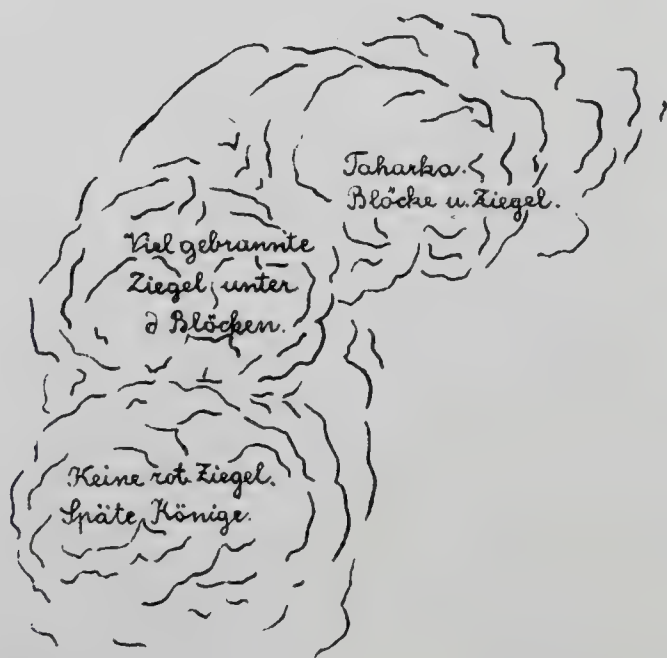 Taharka.
Blöcke u. Ziegel.
Viel gebrannte
Ziegel unter
d Blöcken.
Keine rot. Ziegel.
Späte Könige.